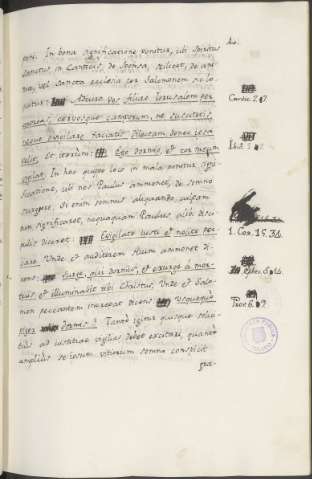 erti. In bona significatione ponitur, ubi Spiritus
Sanctus in Canticis, de Sponsa, scilicet, de ani-
ma, vel Sancta ecclesia per Salomonem ita lo-
quitur: Adiuro vos filiae Ierusalem per
capreas, cervosque camporum, ne suscitetis,
neque evigilare faciatis dilectam donec ipsa
velit. Et iterum: Ego dormio, et cor meum
vigilat. In hac quippe loco in mala ponitur, signi-
ficatione, ubi nos Paulus ammonet, de somno
surgere. Si enim somnus aliquando, culpam
non significaret, nequaquam Paulus disci-
pulis diceret: Evigilate iuste et nolite pec-
care. Unde et auditorem suum ammonet di-
cens: Surge, qui dormis, et exurge a mor-
tuis, et illuminabit tibi Christus. Unde et Salo-
mon peccantem increpat dicens Usquequo
piger dormis? Tanto igitur quisque solli-
tius ad iustitiae vigilias debet excitari, quanto
amplius se in vitiorum somno conspicit
gra-
Cantic. 2. 7.
Ibid. 5. 2.
1. Cor. 15. 34.
Ephes. 5. 14.
Prov. 6. 9.